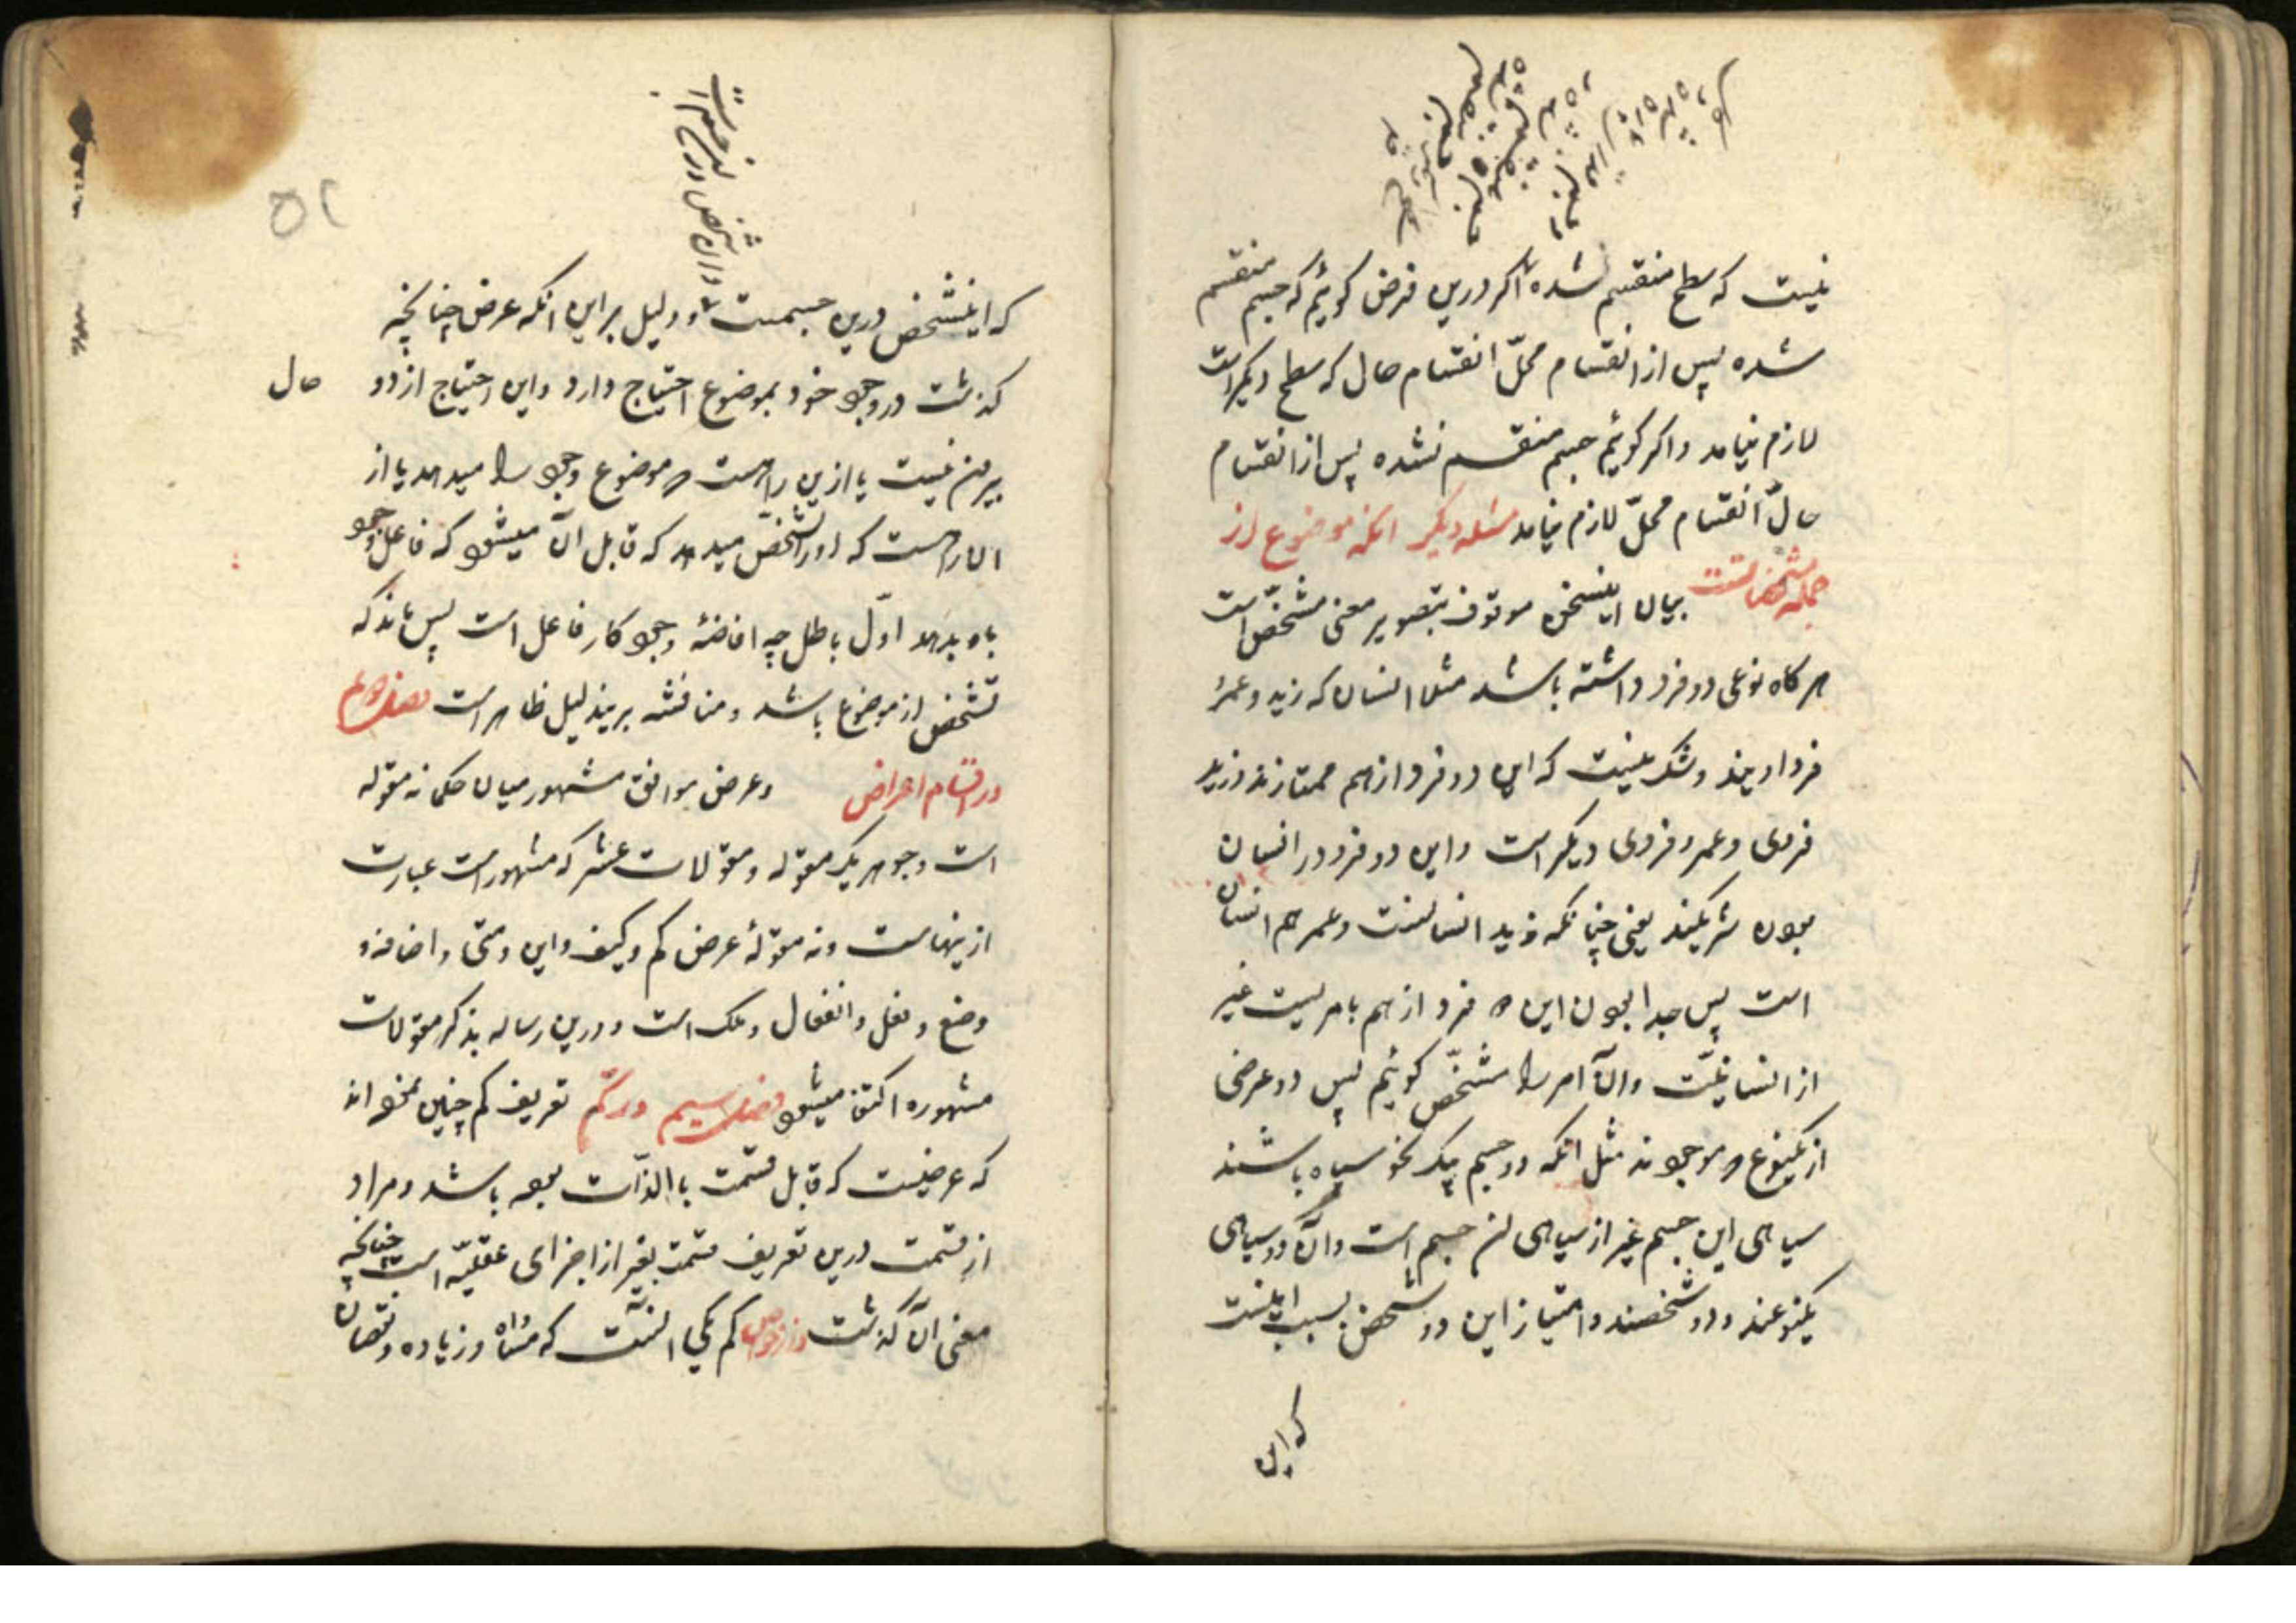 نیست که سطح منقسم شده اکر درین فرض کوئیم که جسم منقسم
شده پس از انقسام محلّ انقسام حال که سطح دیکر است
لازم نیامد واکر کوئیم جسم منقسم نشده پس از انقسام
حالّ انقسام محلّ لازم نیامد مسئله دیکر انکه موضوع از
جمله مشخصاتست بیان اینسخن موقوف بتصویر معنی مشخّص است
هرکاه نوعی دو فرد داشته باشد مثلا انسان که زید وعمرو
فرد اویند وشک نیست که این دو فرد از هم ممتازند وزید
فردی وعمرو فردی دیکر است واین دو فرد در انسان
بودن شریکند یعنی چنانکه زید انسانست وعمر هم انسان
است پس جدا بودن این دو فرد از هم بامریست غیر
از انسانیّت وان امر را مشخّص کوئیم پس دو عرضی
از یکنوع موجودند مثل انکه دو جسم یک نحو سیاه باشند
سیاهی این جسم غیر از سیاهی ان جسم است وان دو سیاهی
یکنوعند ودو شخصند وامتیاز این دو شخص بسبب اینست
که این
که اینشخص درین جسمست ودلیل براین انکه عرض چنانچه
کذشت در وجود خود بموضوع احتیاج دارد واین احتیاج از دو حال
بیرون نیست یا ازین راهست که موضوع وجود را میدهد یا از
ان راهست که اورا تشخّص میدهد که قابل ان میشود که فاعل وجود
باو بدهد اوّل باطل چه افاضهٔ وجود کار فاعل است پس ماند که
تشخص از موضوع باشد ومناقشه برین دلیل ظاهر است فصل دوم
در اقسام اعراض وعرض موافق مشهور میان حکما نه مقوله
است وجوهر یک مقوله ومقولات عشر که مشهور است عبارت
ازینهاست ونه مقولهٔ عرض کم وکیف واین ومتی واضافه و
وضع وفعل وانفعال وملک است ودرین رساله بذکر مقولات
مشهوره اکتفا میشود فصل سیم در کم تعریف کم چنین نموده اند
که عرضیست که قابل قسمت باالذّات بوده باشد ومراد
از قسمت درین تعریف قسمت بغیر از اجزای عقلیّه است چنانچه
معنی ان کذشت واز خواص کم یکی انست که مساواه وزیاده ونقصان